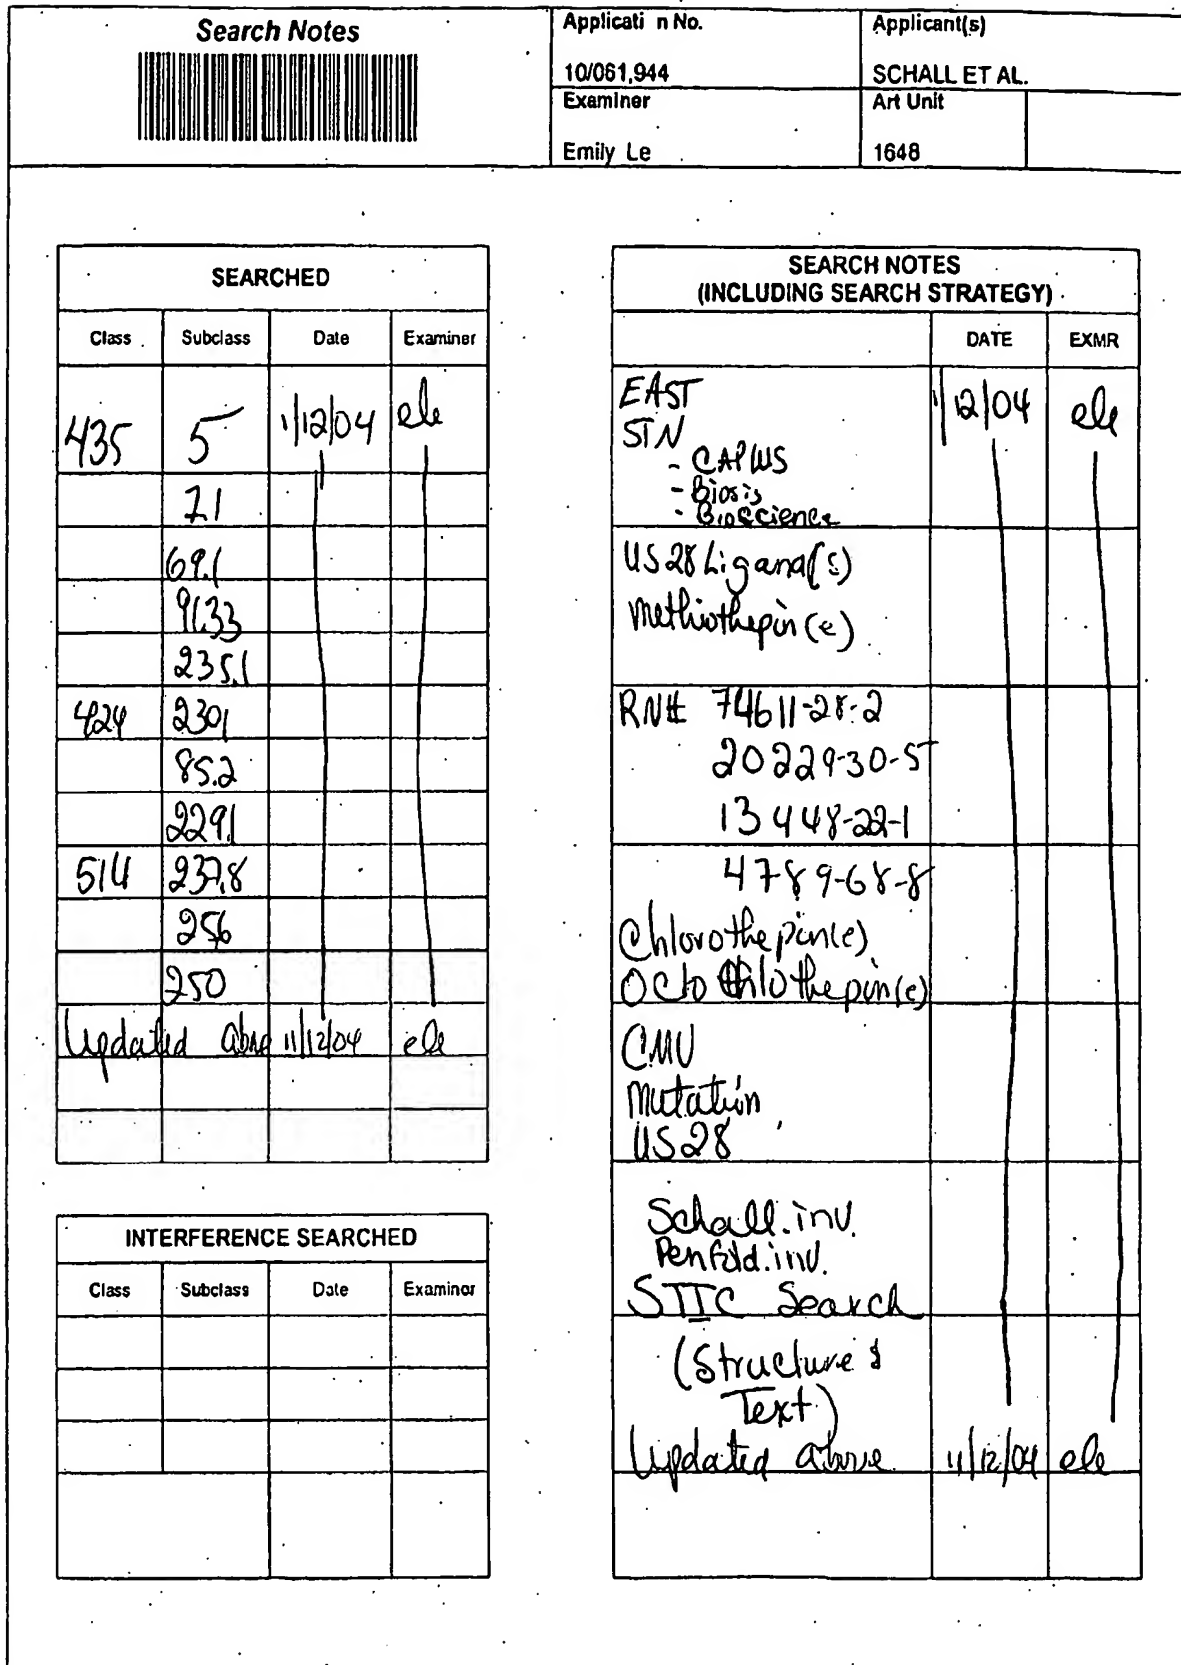 Search Notes
Applicati n No.
10/061,944
Applicant(s)
SCHALL ET AL.
Examiner
Emily Le
Art Unit
1648
SEARCHED
Class Subclass Date Examiner
435 5 1/12/04 ele
7.1
69.1
91.33
235.1
424 230.1
85.2
229.1
514 237.8
256
250
Updated above 11/12/04 ele
INTERFERENCE SEARCHED
Class Subclass Date Examiner
SEARCH NOTES
(INCLUDING SEARCH STRATEGY)
DATE EXMR
EAST 1/12/04 ele
STN
- CAPLUS
- Biosis
- Bioscience
US28 Ligand(s)
Methiothepin(e)
RN# 74611-28-2
20229-30-5
13448-22-1
4789-68-8
Chlorothepin(e)
Octo chlothepin(e)
CMV
Mutation
US28
Schall.inv.
Penfold.inv.
STIC Search
(Structure &
Text)
Updated above 11/12/04 ele